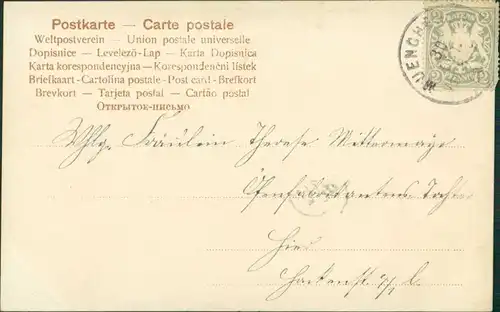 Postkarte — Carte postale
Weltpostverein — Union postale universelle
Dopisnice — Levelező-Lap — Karta Dopisnica
Karta korespondencyjna — Korespondenční lístek
Briefkaart - Cartolina postale - Post card - Brefkort
Brevkort — Tarjeta postal — Cartão postal
Открытое-письмо
MUENCHEN
2 2
2 2
Wohlg. Fräulein Therese Mittermayr
Ofenfabrikantens Tochter
Hier